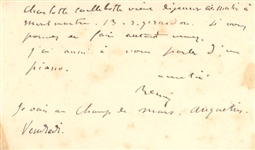 Charlotte Caillebotte viens déjeuner ce matin à
Montmartre. 13 r. girardon. Si vous
pouvez en faire autant venez.
J'ai aussi à vous parler d'un
piano.
amitié
Renoir
Je vais au Champ de mars,
Vendredi.